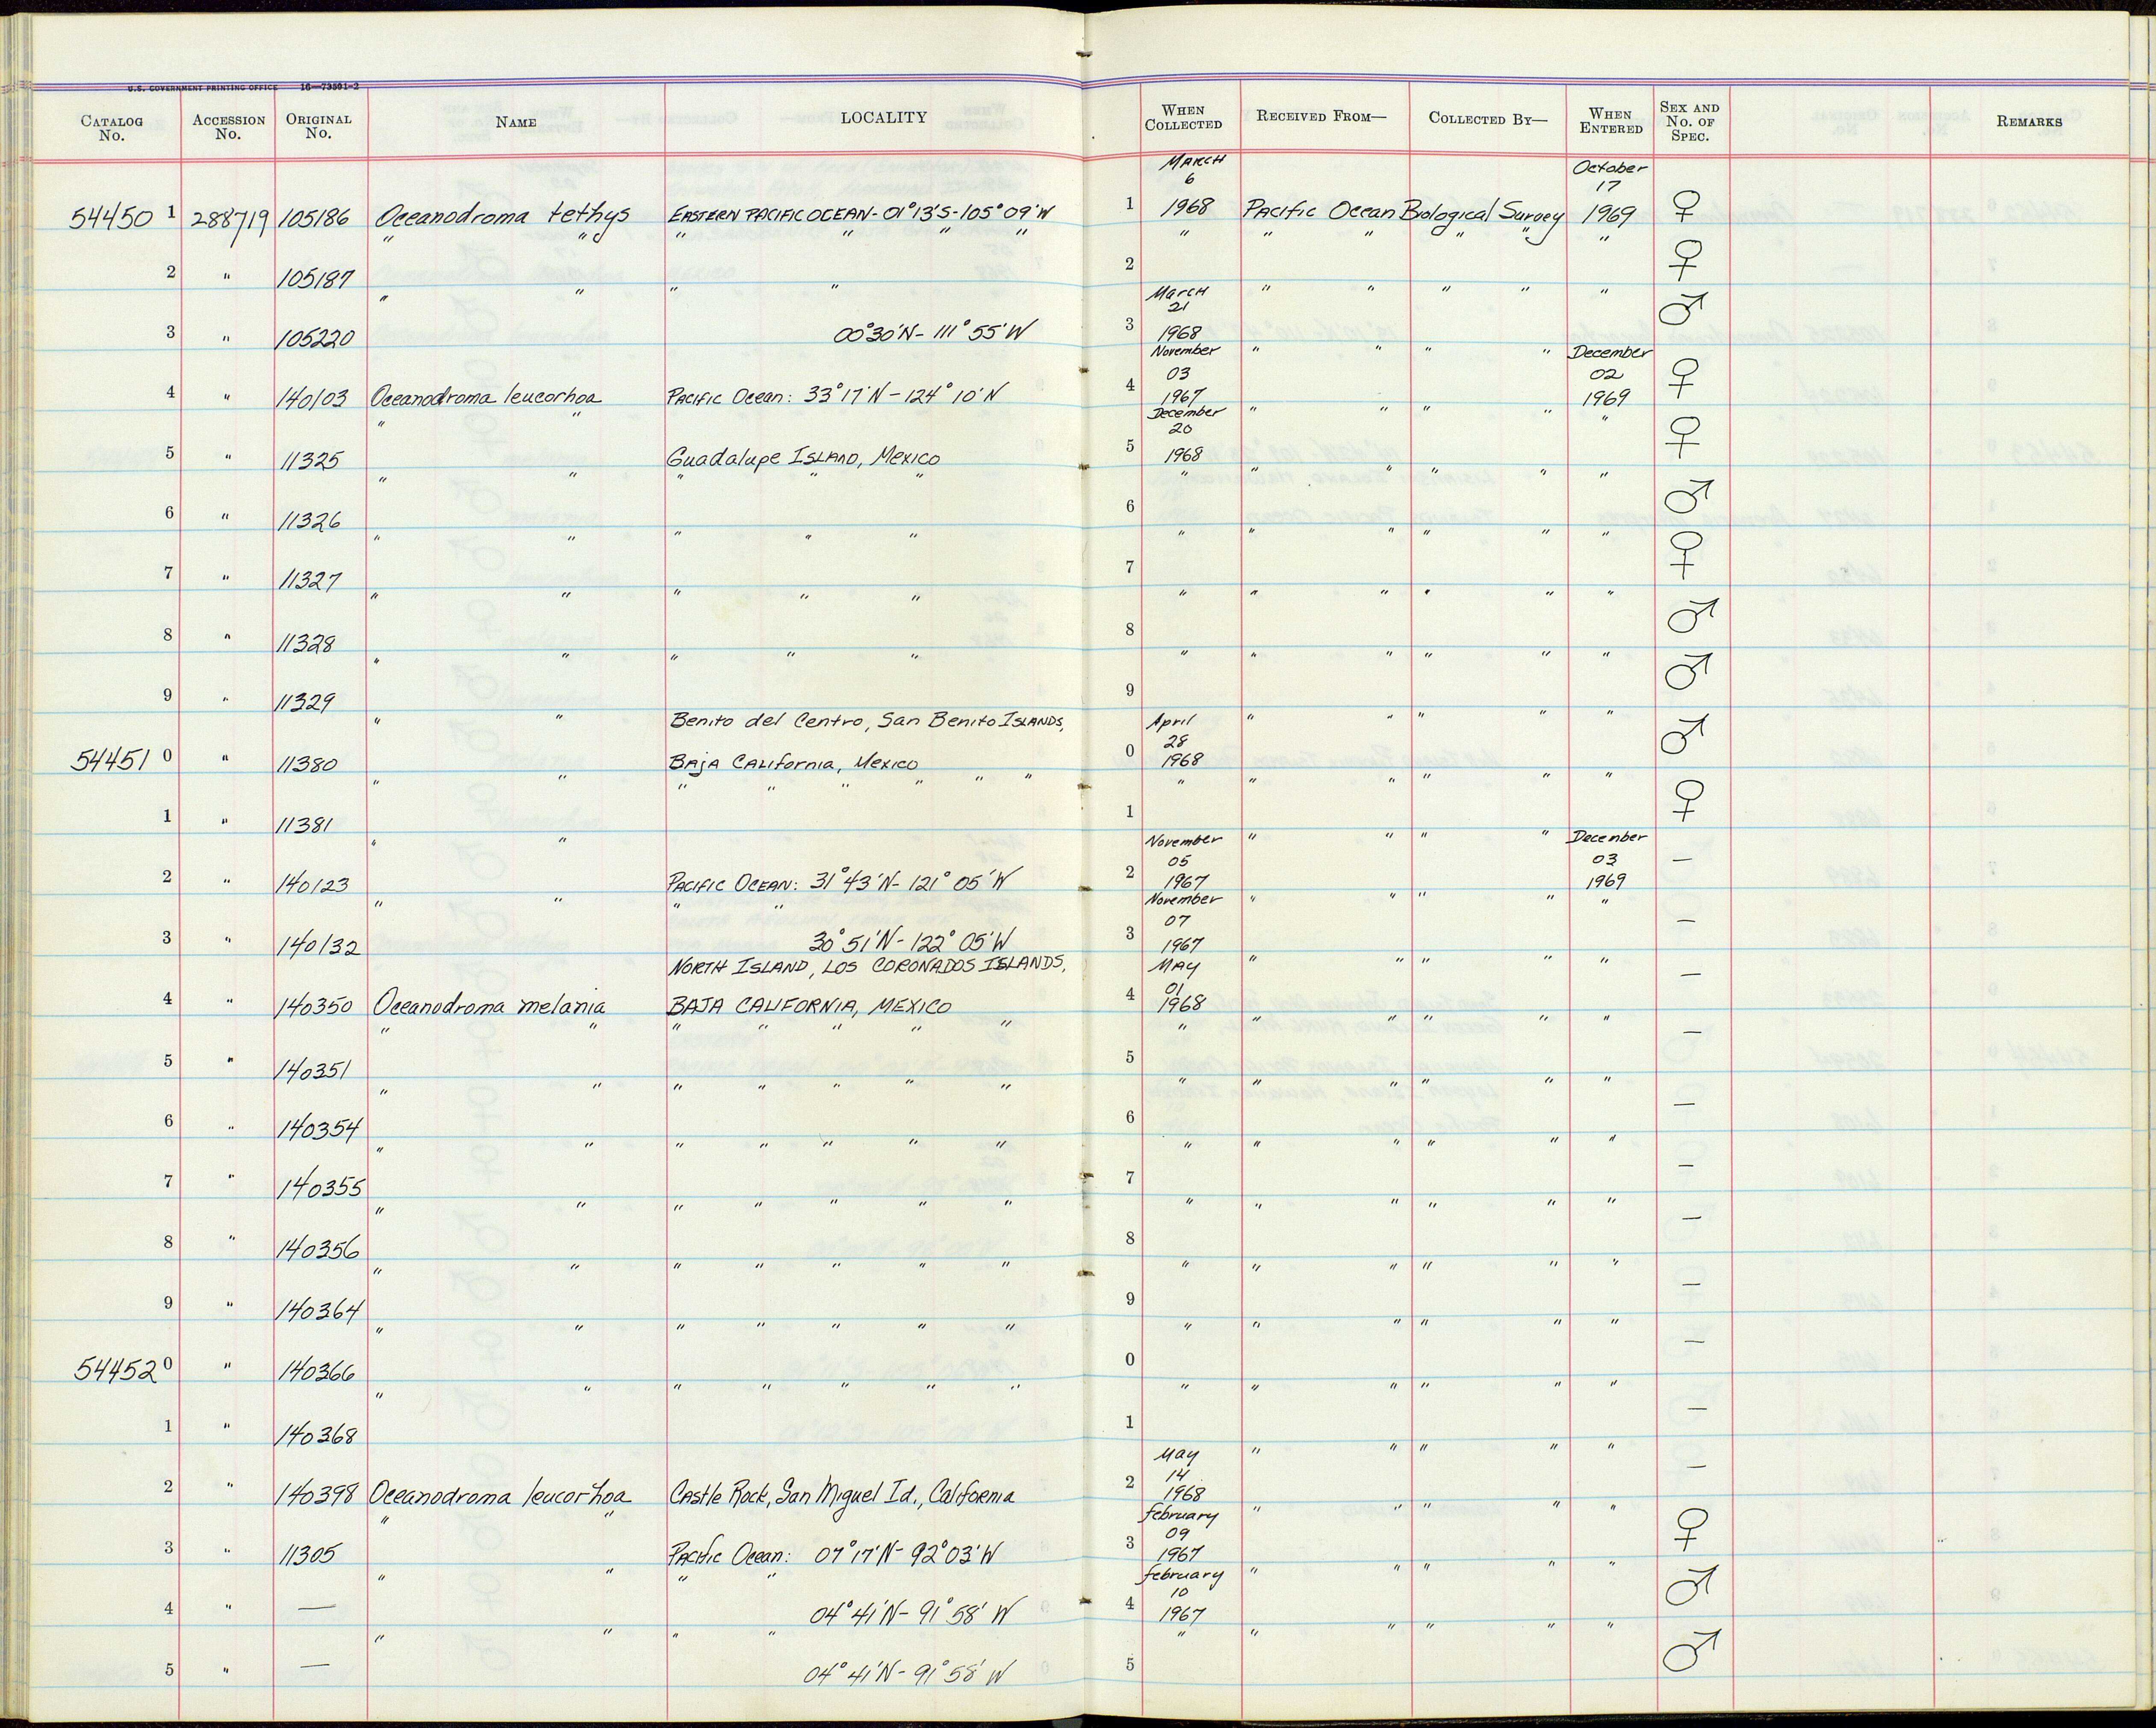 U.S. GOVERNMENT PRINTING OFFICE 16—73591-2
CATALOG No. ACCESSION No. ORIGINAL No. NAME LOCALITY WHEN COLLECTED RECEIVED FROM— COLLECTED BY— WHEN ENTERED SEX AND No. OF SPEC. REMARKS
54450 1 288719 105186 Oceanodroma tethys EASTERN PACIFIC OCEAN - 01°13'S-105°09'W 1 MARCH 6 1968 Pacific Ocean Biological Survey October 17 1969 ♀
2 " 105187 " " " " " " 2 " " " " " " ♀
3 " 105220 " " " " 00°30'N - 111°55'W 3 March 21 1968 " " " " " ♂
4 " 140103 Oceanodroma leucorhoa Pacific Ocean: 33°17'N - 124°10'N 4 November 03 1967 " " " " December 02 1969 ♀
5 " 11325 " " Guadalupe ISLAND, Mexico 5 December 20 1968 " " " " " ♀
6 " 11326 " " " " " 6 " " " " " " ♂
7 " 11327 " " " " " 7 " " " " " " ♀
8 " 11328 " " " " " 8 " " " " " " ♂
9 " 11329 " " " " " 9 " " " " " " ♂
Benito del Centro, San Benito ISLANDS,
54451 0 " 11380 " " BAJA CALifornia, Mexico 0 April 28 1968 " " " " " ♂
1 " 11381 " " " " " " " " 1 " " " " " " ♀
2 " 140123 " " PACIFIC OCEAN: 31°43'N - 121°05'W 2 November 05 1967 " " " " December 03 1969 —
3 " 140132 " " " " 30°51'N - 122°05'W 3 November 07 1967 " " " " " —
NORTH ISLAND, LOS CORONADOS ISLANDS,
4 " 140350 Oceanodroma melania BAJA CALIFORNIA, MEXICO 4 MAY 01 1968 " " " " " —
5 " 140351 " " " " " " " 5 " " " " " " —
6 " 140354 " " " " " " " 6 " " " " " " —
7 " 140355 " " " " " " " 7 " " " " " " —
8 " 140356 " " " " " " " 8 " " " " " " —
9 " 140364 " " " " " " " 9 " " " " " " —
54452 0 " 140366 " " " " " " " 0 " " " " " " —
1 " 140368 " " " " " " " 1 " " " " " " —
2 " 140398 Oceanodroma leucorhoa Castle Rock, San Miguel Id., California 2 May 14 1968 " " " " " —
3 " 11305 " " Pacific Ocean: 07°17'N - 92°03'W 3 february 09 1967 " " " " " ♀
4 " — " " " " 04°41'N - 91°58' W 4 february 10 1967 " " " " " ♂
5 " — " " " " 04°41'N - 91°58' W 5 " " " " " " ♂